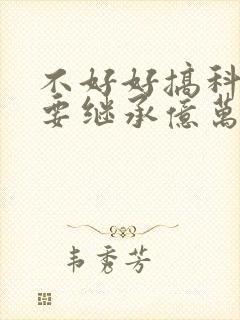 不好好搞科
要继承億萬
韦秀芳